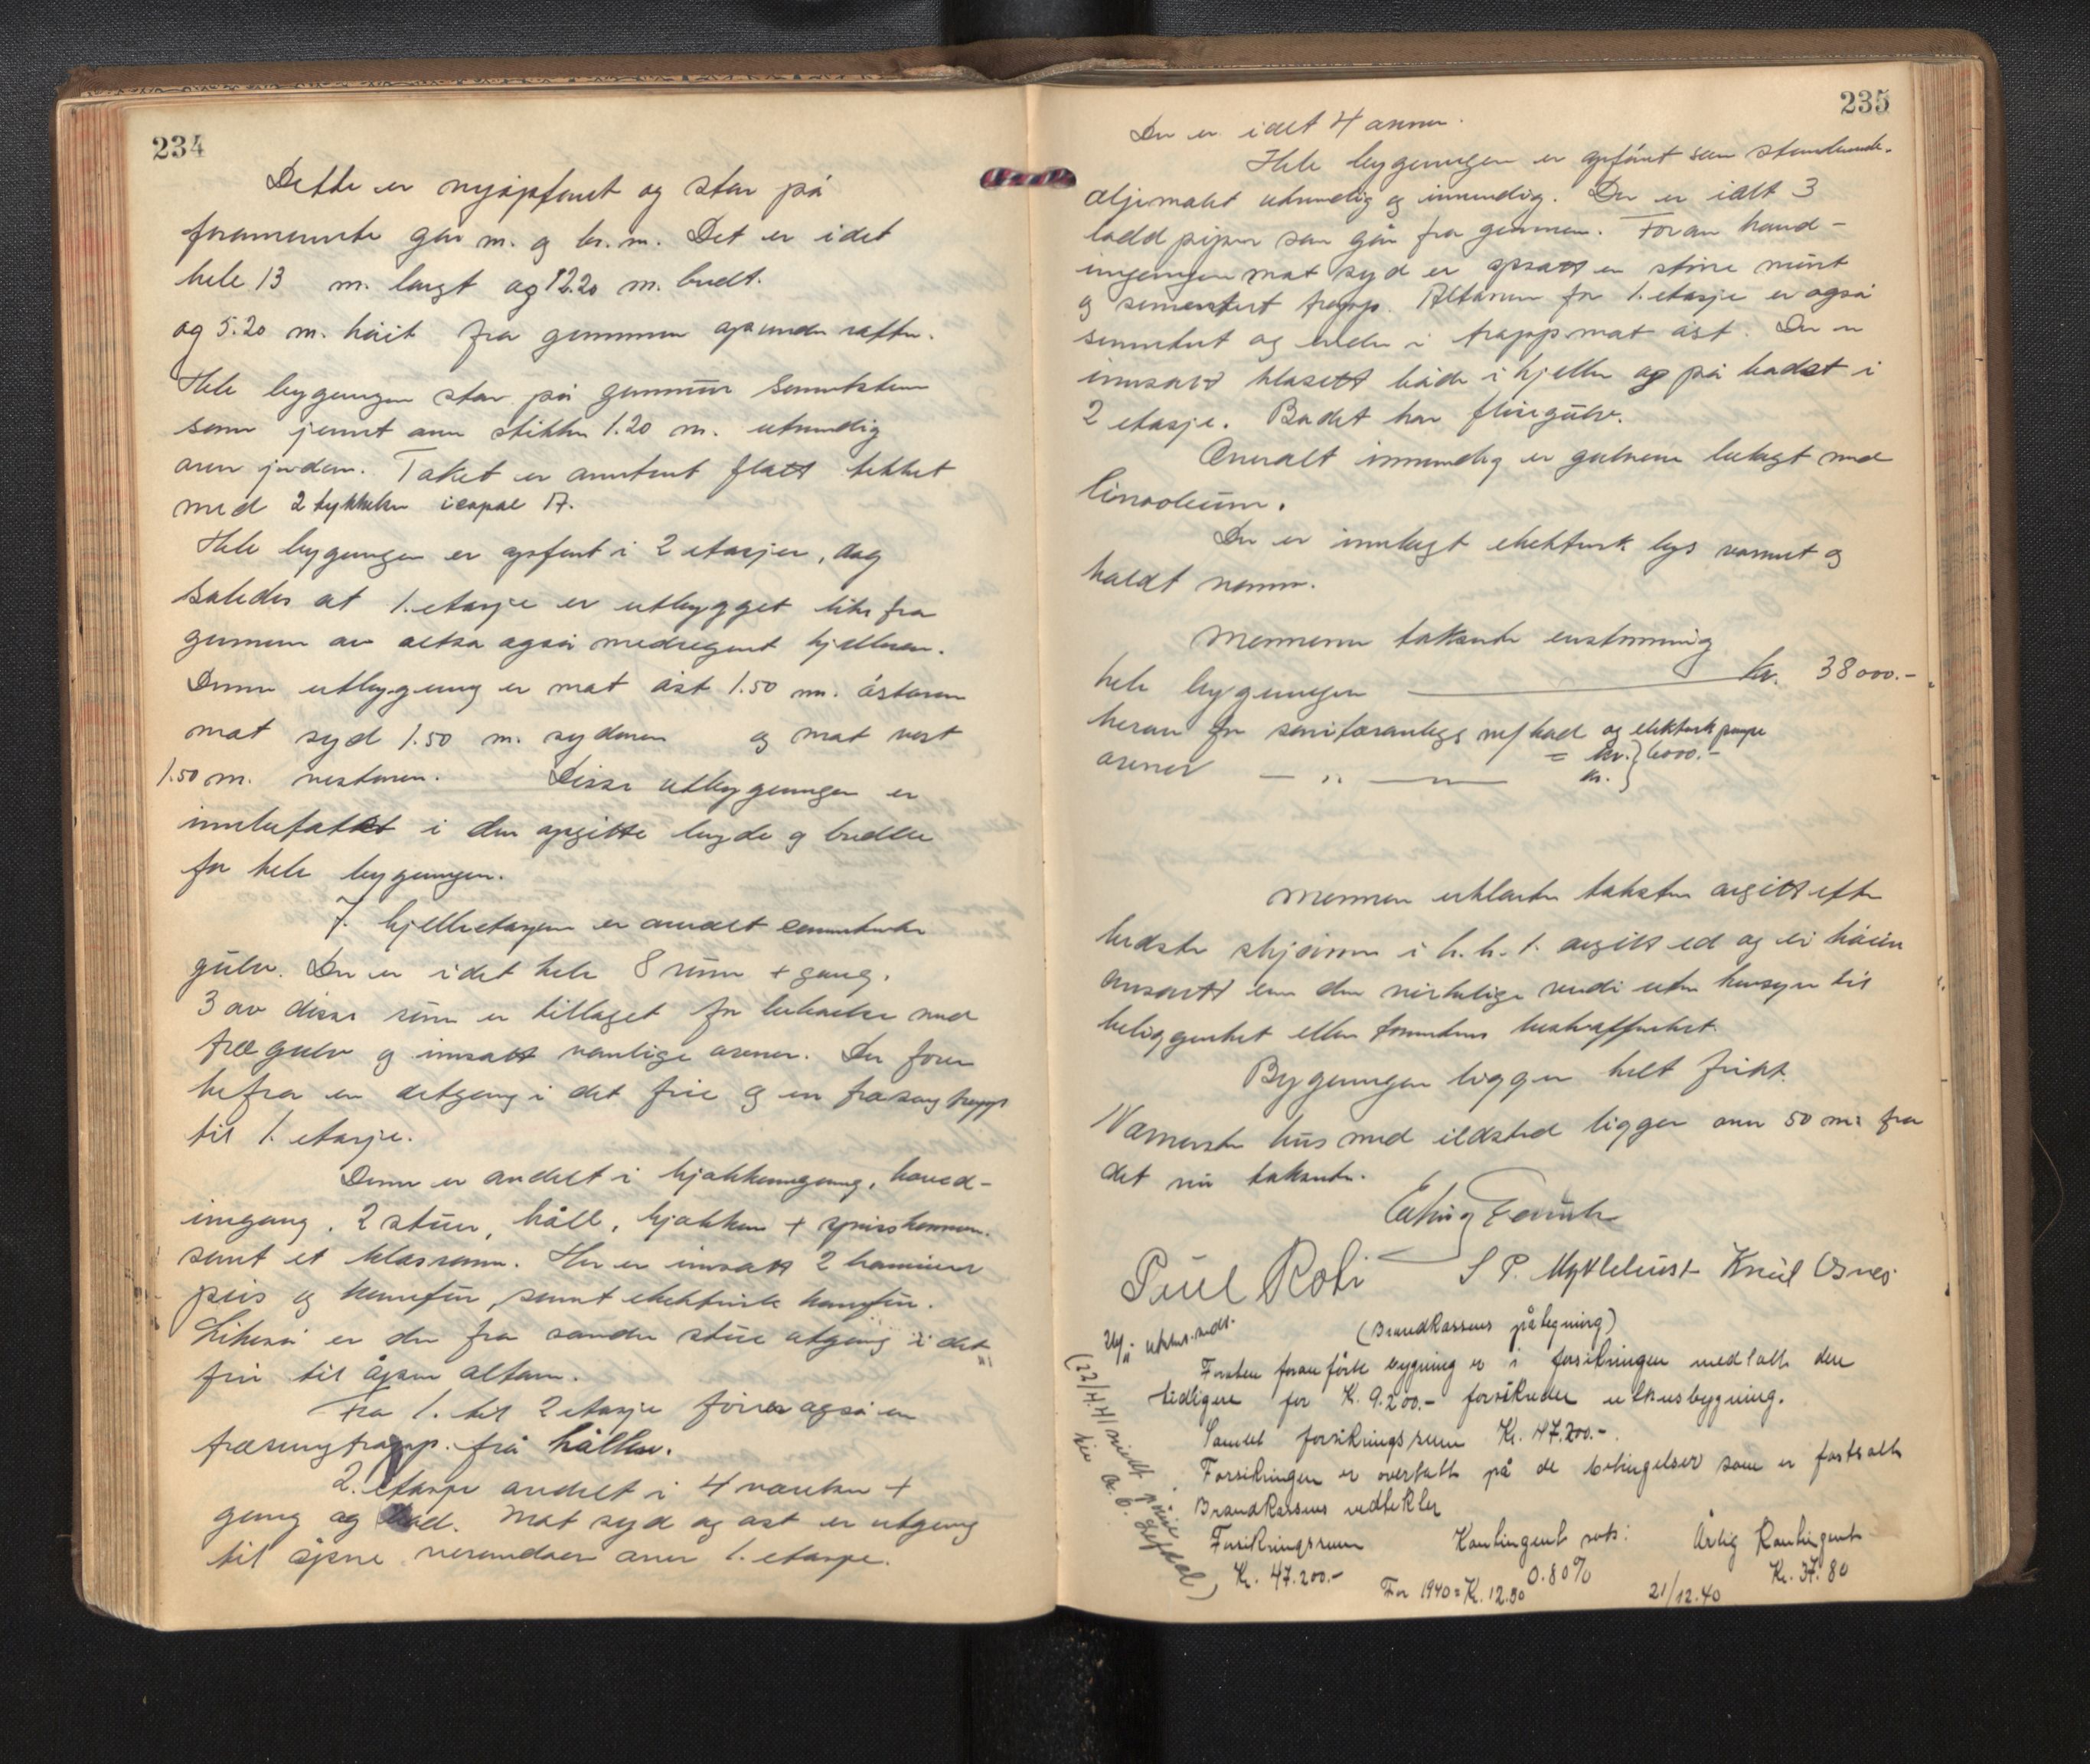 234
Dette er nyopført og står på
forannevnte går m. og br. m. Det er i det
hele 13 m. langt og 12.20 m. bredt.
og 5.20 m. høit fra grunnmur op under rafter.
Hele bygningen står på grunnmur sementsten
som jevnt over stikker 1.20 m. utvendig
over jorden. Taket er omtrent flatt tekket
med 2 tykkelser icopal A.
Hele bygningen er opført i 2 etasjer, dog
således at 1. etasje er utbygget like fra
grunnen av altså også medregnet kjelleren.
Denne utbygning er mot øst 1.50 m.
mot syd 1.50 m. og mot vest
1.50 m. Disse utbygninger er
innbefattet i den opgitte lengde og bredde
for hele bygningen.
I kjelleretasjen er overalt sementerte
gulv. Der er i det hele 8 rum + gang.
3 av disse rum er tillaget for beboelse med
tregulv og innsatt vanlige ovner. Der fører
herfra en utgang i det frie og en tresving trapp
til 1. etasje.
Denne er avdelt i kjøkkeninngang, hoved-
inngang, 2 stuer, håll, kjøkken + spisskammer
samt et klosrum. Her er innsatt 2 kaminer
peis og komfur, samt elektrisk komfyr.
Likeså er der fra søndre stue utgang i det
fri til åpen altan.
Fra 1. til 2 etasje fører også en
tresvingtrapp. frå hållen.
2. etasje avdelt i 4 værelser +
gang og bad. Mot syd og øst er utgang
til åpne verandaer over 1. etasje.
235
Der er i det 4 ovner.
Hele bygningen er opført som
oljemalet utvendig og innvendig. Der er i alt 3
lødd piper som går fra grunnen. Foran hoved-
inngangen mot syd er opsatt en større muret
og sementert trapp. Altanen for 1. etasje er også
sementert og ender i trapp mot øst. Der er
innsatt klosett både i kjeller og på badet i
2 etasje. Badet har flisegulv.
Overalt innvendig er gulvene belagt med
linoleum.
Der er innlagt elektrisk lys varmt og
kaldt vann.
Mennene takserte enstemmig
hele bygningen kr. 38 000.-
herav for sanitæranlegg m/ bad og elektrisk pumpe
= kr. } 6000.-
ovner — „ — kr. }
Mennene erklærte taksten avgitt efter
bedste skjønn i h. h. t. avgitt ed og ei høiere
ansatt enn den virkelige verdi uten hensyn til
beliggenhet eller tomtens beskaffenhet.
Bygningen ligger helt fritt.
Nærmeste hus med ildsted ligger over 50 m. fra
det nu takserte.
Poul Roti S P. Myklebust Knut Osnes
(Brandkassens påtegning)
Foranstående bygning er i forsikringen medtatt den
tidligere for Kr. 9.200.- forsikrede uthusbygning.
Samlet forsikringssum Kr. 47.200.-
Forsikringen er overtatt på de betingelser som er fastsatt
Brandkassens vedtekter
Forsikringssum Kontingent sats: Årlig Kontingent
Kr. 47.200.- 0.80% Kr. 37.80
For 1940 = Kr. 12.50 21/12.40